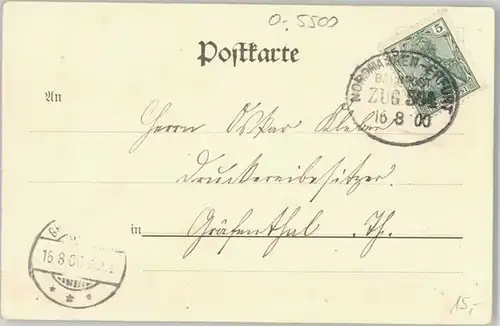 O-5500
Postkarte
5
NORDHAUSEN-ERFURT
ZUG
16 8 00
An
Herrn Oskar Kleber
Druckereibesitzer
in Gräfenthal. Th.
16.8.00
15,-